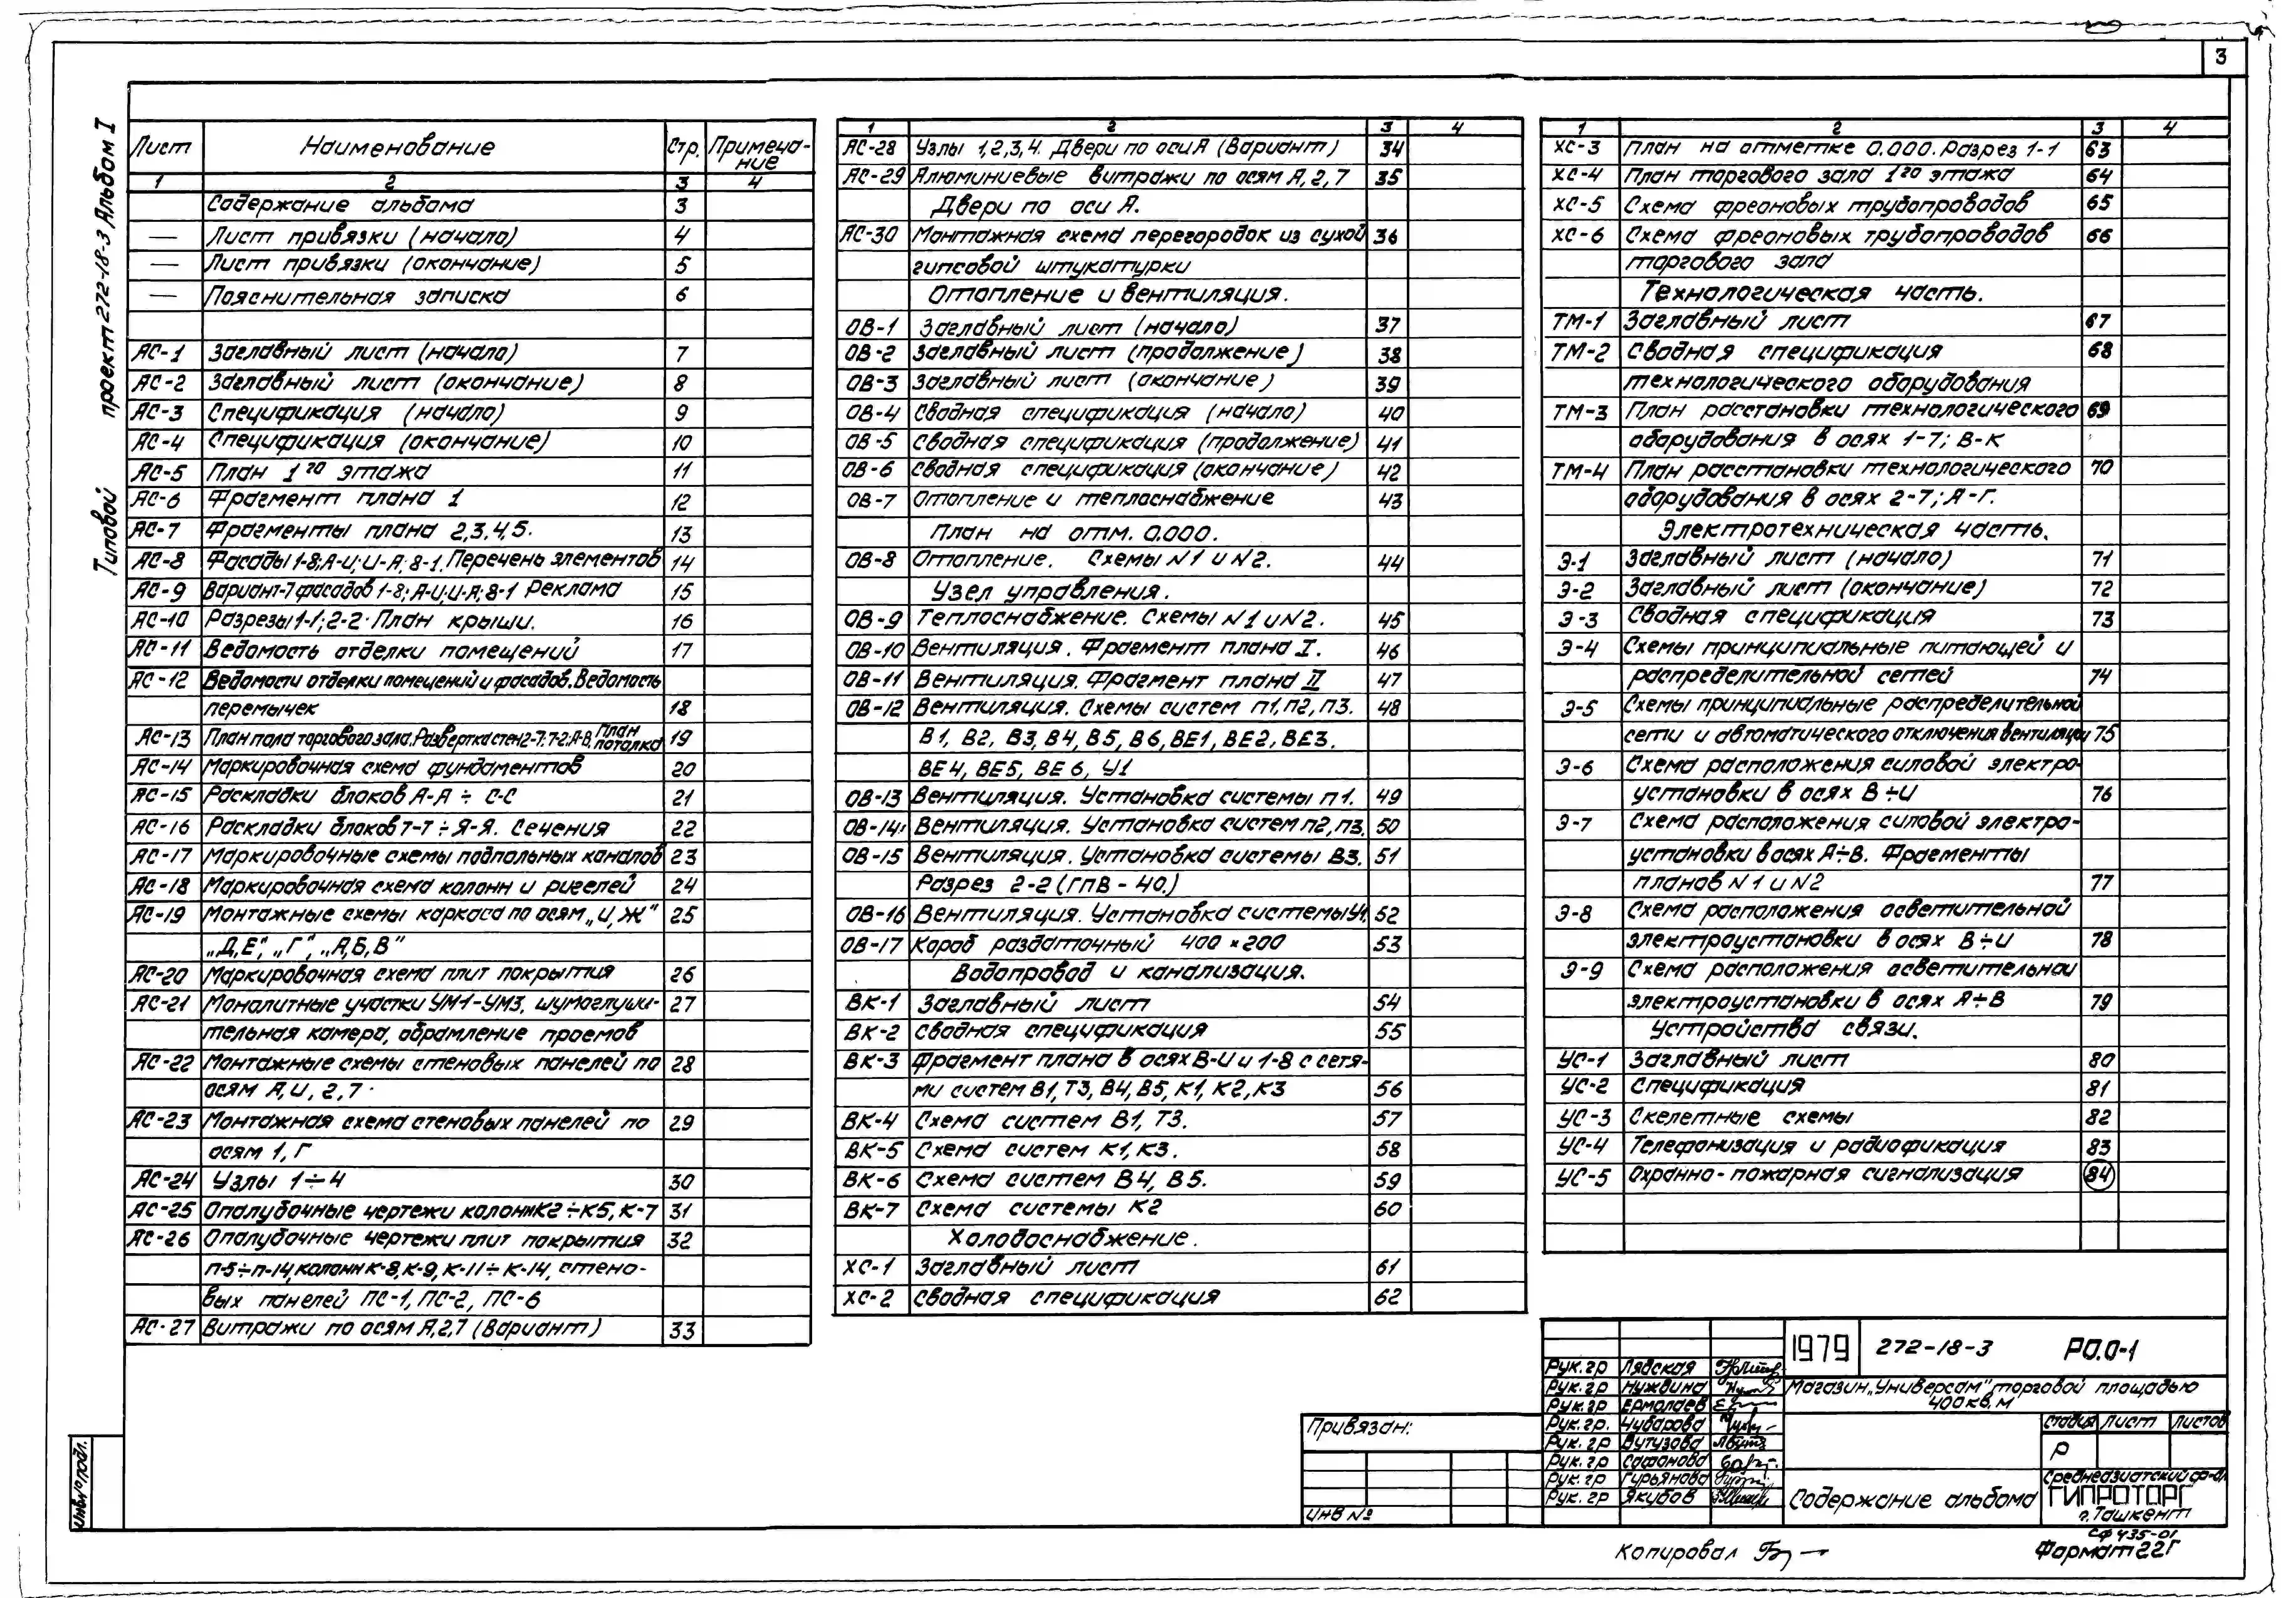 3
Типовой проект 272-18-3 Альбом I
Лист Наименование Стр. Примеча-
ние
1 2 3 4
Содержание альбома 3
— Лист привязки (начало) 4
— Лист привязки (окончание) 5
— Пояснительная записка 6
АС-1 Заглавный лист (начало) 7
АС-2 Заглавный лист (окончание) 8
АС-3 Спецификация (начало) 9
АС-4 Спецификация (окончание) 10
АС-5 План 1го этажа 11
АС-6 Фрагмент плана 1 12
АС-7 Фрагменты плана 2,3,4,5. 13
АС-8 Фасады 1-8; А-И; И-А; 8-1. Перечень элементов 14
АС-9 Вариант-7 фасадов 1-8; А-И; И-А; 8-1 Реклама 15
АС-10 Разрезы 1-1; 2-2. План крыши. 16
АС-11 Ведомость отделки помещений 17
АС-12 Ведомости отделки помещений и фасадов. Ведомость
перемычек 18
АС-13 План пола торгового зала. Развертка стен 2-7; 7-2; А-В. План потолка 19
АС-14 Маркировочная схема фундаментов 20
АС-15 Раскладки блоков А-А ÷ С-С 21
АС-16 Раскладки блоков Т-Т ÷ Я-Я. Сечения 22
АС-17 Маркировочные схемы подпольных каналов 23
АС-18 Маркировочная схема колонн и ригелей 24
АС-19 Монтажные схемы каркаса по осям „И, Ж" 25
„Д,Е", „Г", „А,Б,В"
АС-20 Маркировочная схема плит покрытия 26
АС-21 Монолитные участки УМ1-УМ3, шумоглуши- 27
тельная камера, обрамление проемов
АС-22 Монтажные схемы стеновых панелей по 28
осям А, И, 2, 7.
АС-23 Монтажная схема стеновых панелей по 29
осям 1, Г
АС-24 Узлы 1÷4 30
АС-25 Опалубочные чертежи колонн К2÷К5, К-7 31
АС-26 Опалубочные чертежи плит покрытия 32
П-5÷П-14, колонн К-8, К-9, К-11÷К-14, стено-
вых панелей ПС-1, ПС-2, ПС-6
АС-27 Витражи по осям А,2,7 (Вариант) 33
1 2 3 4
АС-28 Узлы 1,2,3,4. Двери по оси А (Вариант) 34
АС-29 Алюминиевые витражи по осям А, 2, 7 35
Двери по оси А.
АС-30 Монтажная схема перегородок из сухой 36
гипсовой штукатурки
Отопление и вентиляция.
ОВ-1 Заглавный лист (начало) 37
ОВ-2 Заглавный лист (продолжение) 38
ОВ-3 Заглавный лист (окончание) 39
ОВ-4 Сводная спецификация (начало) 40
ОВ-5 Сводная спецификация (продолжение) 41
ОВ-6 Сводная спецификация (окончание) 42
ОВ-7 Отопление и теплоснабжение 43
План на отм. 0.000.
ОВ-8 Отопление. Схемы N1 и N2. 44
Узел управления.
ОВ-9 Теплоснабжение. Схемы N1 и N2. 45
ОВ-10 Вентиляция. Фрагмент плана I. 46
ОВ-11 Вентиляция. Фрагмент плана II 47
ОВ-12 Вентиляция. Схемы систем П1, П2, П3. 48
В1, В2, В3, В4, В5, В6, ВЕ1, ВЕ2, ВЕ3.
ВЕ4, ВЕ5, ВЕ6, У1
ОВ-13 Вентиляция. Установка системы П1. 49
ОВ-14 Вентиляция. Установка систем П2, П3. 50
ОВ-15 Вентиляция. Установка системы В3. 51
Разрез 2-2 (ГПВ-40.)
ОВ-16 Вентиляция. Установка системы У1. 52
ОВ-17 Короб раздаточный 400×200 53
Водопровод и канализация.
ВК-1 Заглавный лист 54
ВК-2 Сводная спецификация 55
ВК-3 Фрагмент плана в осях В-И и 1-8 с сетя-
ми систем В1, Т3, В4, В5, К1, К2, К3 56
ВК-4 Схема систем В1, Т3. 57
ВК-5 Схема систем К1, К3. 58
ВК-6 Схема систем В4, В5. 59
ВК-7 Схема системы К2 60
Холодоснабжение.
ХС-1 Заглавный лист 61
ХС-2 Сводная спецификация 62
1 2 3 4
ХС-3 План на отметке 0.000. Разрез 1-1 63
ХС-4 План торгового зала 1го этажа 64
ХС-5 Схема фреоновых трубопроводов 65
ХС-6 Схема фреоновых трубопроводов 66
торгового зала
Технологическая часть.
ТМ-1 Заглавный лист 67
ТМ-2 Сводная спецификация 68
технологического оборудования
ТМ-3 План расстановки технологического 69
оборудования в осях 1-7; В-К
ТМ-4 План расстановки технологического 70
оборудования в осях 2-7; А-Г.
Электротехническая часть.
Э-1 Заглавный лист (начало) 71
Э-2 Заглавный лист (окончание) 72
Э-3 Сводная спецификация 73
Э-4 Схемы принципиальные питающей и
распределительной сетей 74
Э-5 Схемы принципиальные распределительной
сети и автоматического отключения вентиляции 75
Э-6 Схема расположения силовой электро-
установки в осях В÷И 76
Э-7 Схема расположения силовой электро-
установки в осях А÷В. Фрагменты
планов N1 и N2 77
Э-8 Схема расположения осветительной
электроустановки в осях В÷И 78
Э-9 Схема расположения осветительной
электроустановки в осях А÷В 79
Устройства связи.
УС-1 Заглавный лист 80
УС-2 Спецификация 81
УС-3 Скелетные схемы 82
УС-4 Телефонизация и радиофикация 83
УС-5 Охранно-пожарная сигнализация 84
1979 272-18-3 РО.0-1
Рук.гр Лядская
Рук.гр Нуждина
Рук.гр Ермолаев
Рук.гр. Чубарова
Рук.гр Вутузова
Рук.гр Сафонова
Рук.гр Гурьянова
Рук.гр Якубов
Магазин „Универсам" торговой площадью
400 кв. м
Стадия Лист Листов
Р
Содержание альбома
Среднеазиатский ф-ал
ГИПРОТОРГ
г. Ташкент
Привязан:
Инв №
Инв № подл.
Копировал
СФ 435-01
Формат 22Г